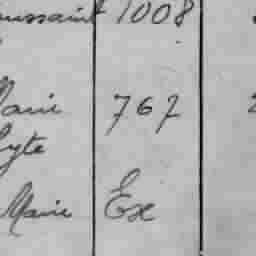 oussaint 1008
Marie 767
lyte
Marie Ex